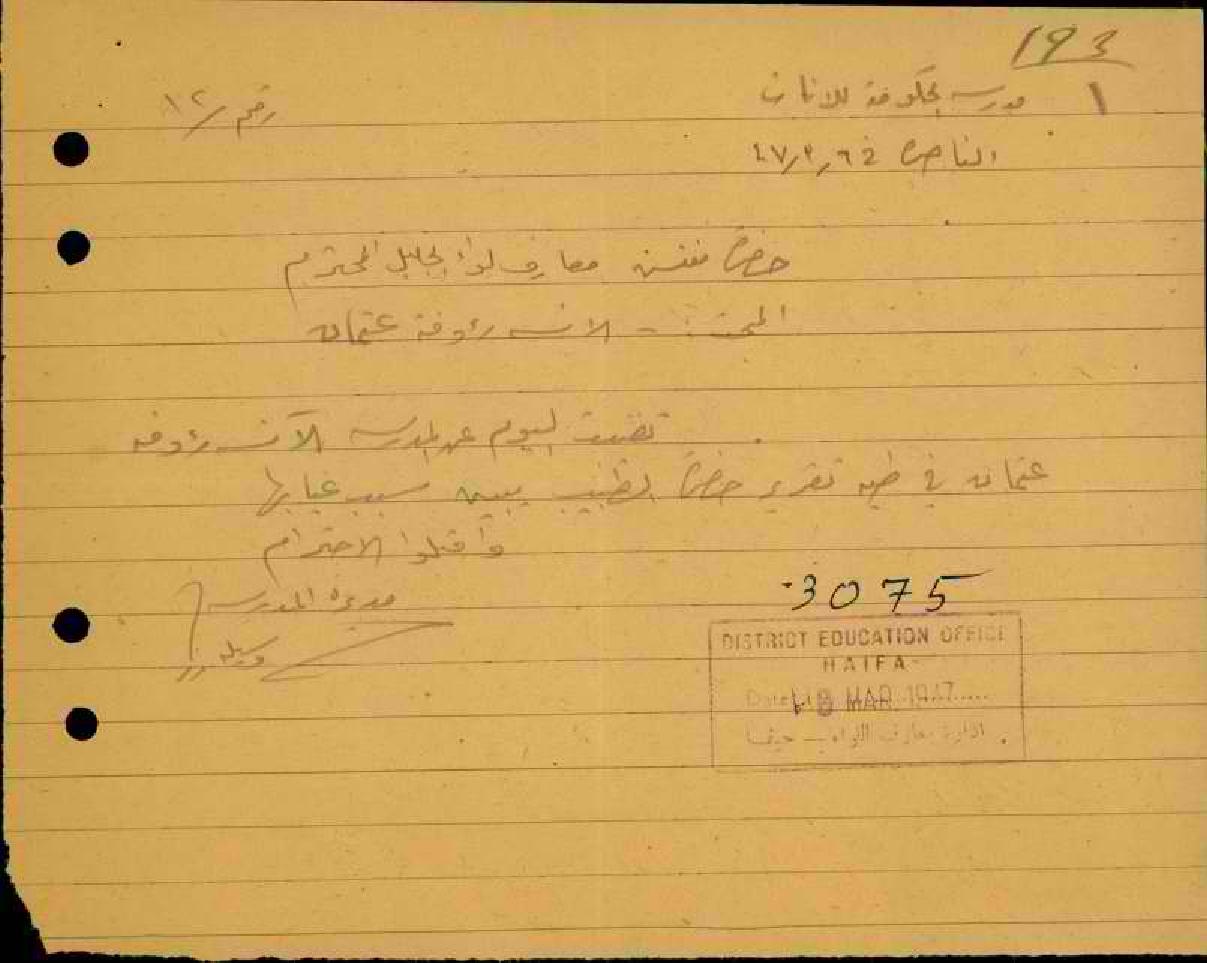 193
1
مدرسة الحكومة للاناث
رقم / ١٢
الناصرة
حضرة مفتش معارف لواء الجليل المحترم
المبحث :- الانسه رؤوفة عثمان
تغيبت اليوم عن المدرسه الآنسه رؤوفه
عثمان في طيه تقرير حضرة الطبيب يبين سبب غيابها
واقبلوا الاحترام
مديرة المدرسه
3075
DISTRICT EDUCATION OFFICE
HAIFA
Date MAR 1947
ادارة معارف اللواء - حيفا